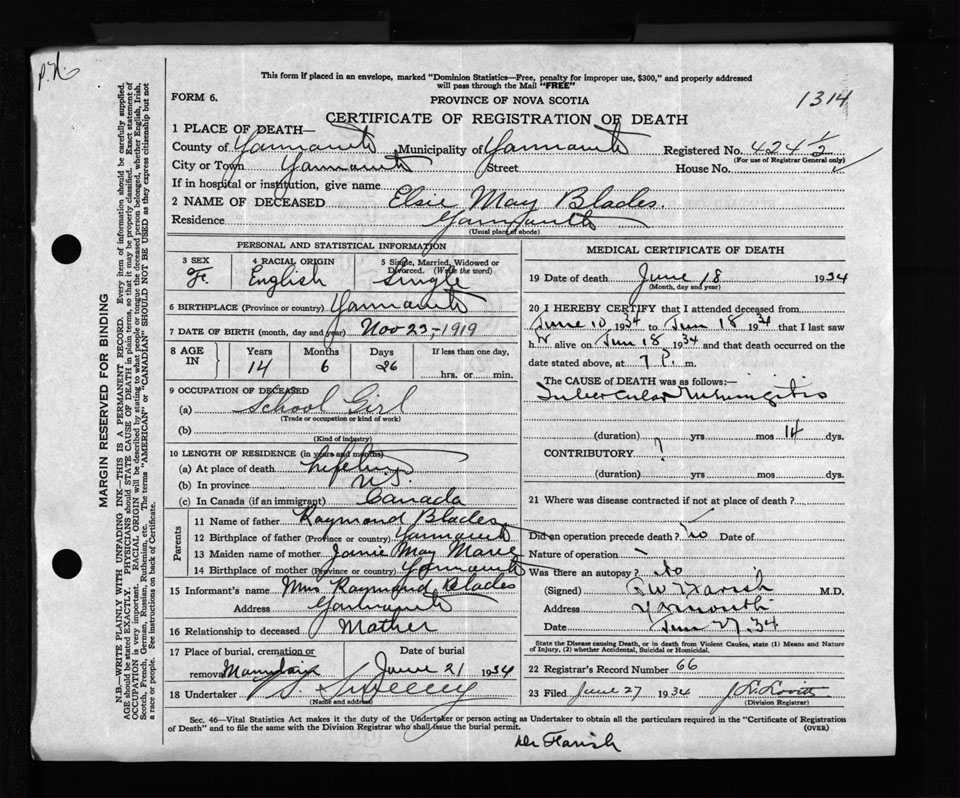 This form if placed in an envelope, marked "Dominion Statistics—Free, penalty for improper use, $300," and properly addressed
will pass through the Mail "FREE"
FORM 6.
PROVINCE OF NOVA SCOTIA
1314
CERTIFICATE OF REGISTRATION OF DEATH
1 PLACE OF DEATH—
County of Yarmouth Municipality of Yarmouth Registered No. 424 1/2
(For use of Registrar General only)
City or Town Yarmouth Street House No.
If in hospital or institution, give name
2 NAME OF DECEASED Elsie May Blades.
Residence Yarmouth
(Usual place of abode)
PERSONAL AND STATISTICAL INFORMATION
3 SEX F. 4 RACIAL ORIGIN English 5 Single, Married, Widowed or Divorced. (Write the word) Single
6 BIRTHPLACE (Province or country) Yarmouth
7 DATE OF BIRTH (month, day and year) Nov 23, 1919
8 AGE IN Years Months Days If less than one day,
14 6 26 hrs. or min.
9 OCCUPATION OF DECEASED
(a) School Girl
(Trade or occupation or kind of work)
(b)
(Kind of industry)
10 LENGTH OF RESIDENCE (in years and months)
(a) At place of death
(b) In province N.S.
(c) In Canada (if an immigrant) Canada
Parents
11 Name of father Raymond Blades
12 Birthplace of father (Province or country) Yarmouth
13 Maiden name of mother Janie May
14 Birthplace of mother (Province or country) Yarmouth
15 Informant's name Mrs Raymond Blades
Address Yarmouth
16 Relationship to deceased Mother
17 Place of burial, cremation or removal Date of burial
June 21 1934
18 Undertaker Sweeny
(Name and address)
MEDICAL CERTIFICATE OF DEATH
19 Date of death June 18 1934
(Month, day and year)
20 I HEREBY CERTIFY that I attended deceased from
June 10 1934 to June 18 1934 that I last saw
h alive on June 18 1934 and that death occurred on the
date stated above, at 7 P. m.
The CAUSE of DEATH was as follows:—
Tubercular Meningitis
(duration) yrs mos 14 dys.
CONTRIBUTORY ?
(duration) yrs. mos dys.
21 Where was disease contracted if not at place of death?
Did an operation precede death? no Date of
Nature of operation
Was there an autopsy? no
(Signed) Farish M.D.
Address Yarmouth
Date June 27. 34
State the Disease causing Death, or in death from Violent Causes, state (1) Means and Nature
of Injury, (2) whether Accidental, Suicidal or Homicidal.
22 Registrar's Record Number 66
23 Filed June 27 1934 Lovitt
(Division Registrar)
Sec. 46—Vital Statistics Act makes it the duty of the Undertaker or person acting as Undertaker to obtain all the particulars required in the "Certificate of Registration
of Death" and to file the same with the Division Registrar who shall issue the burial permit. (OVER)
Dr Farish
MARGIN RESERVED FOR BINDING
N.B.—WRITE PLAINLY WITH UNFADING INK—THIS IS A PERMANENT RECORD. Every item of information should be carefully supplied.
AGE should be stated EXACTLY. PHYSICIANS should STATE CAUSE OF DEATH in plain terms, so that it may be properly classified. Exact statement of
OCCUPATION is very important. RACIAL ORIGIN will be described by stating to what people or tongue the deceased person belonged, whether English, Irish,
Scotch, French, German, Russian, Ruthenian, etc. The terms "AMERICAN" or "CANADIAN" SHOULD NOT BE USED as they express citizenship but not
a race or people. See instructions on back of Certificate.